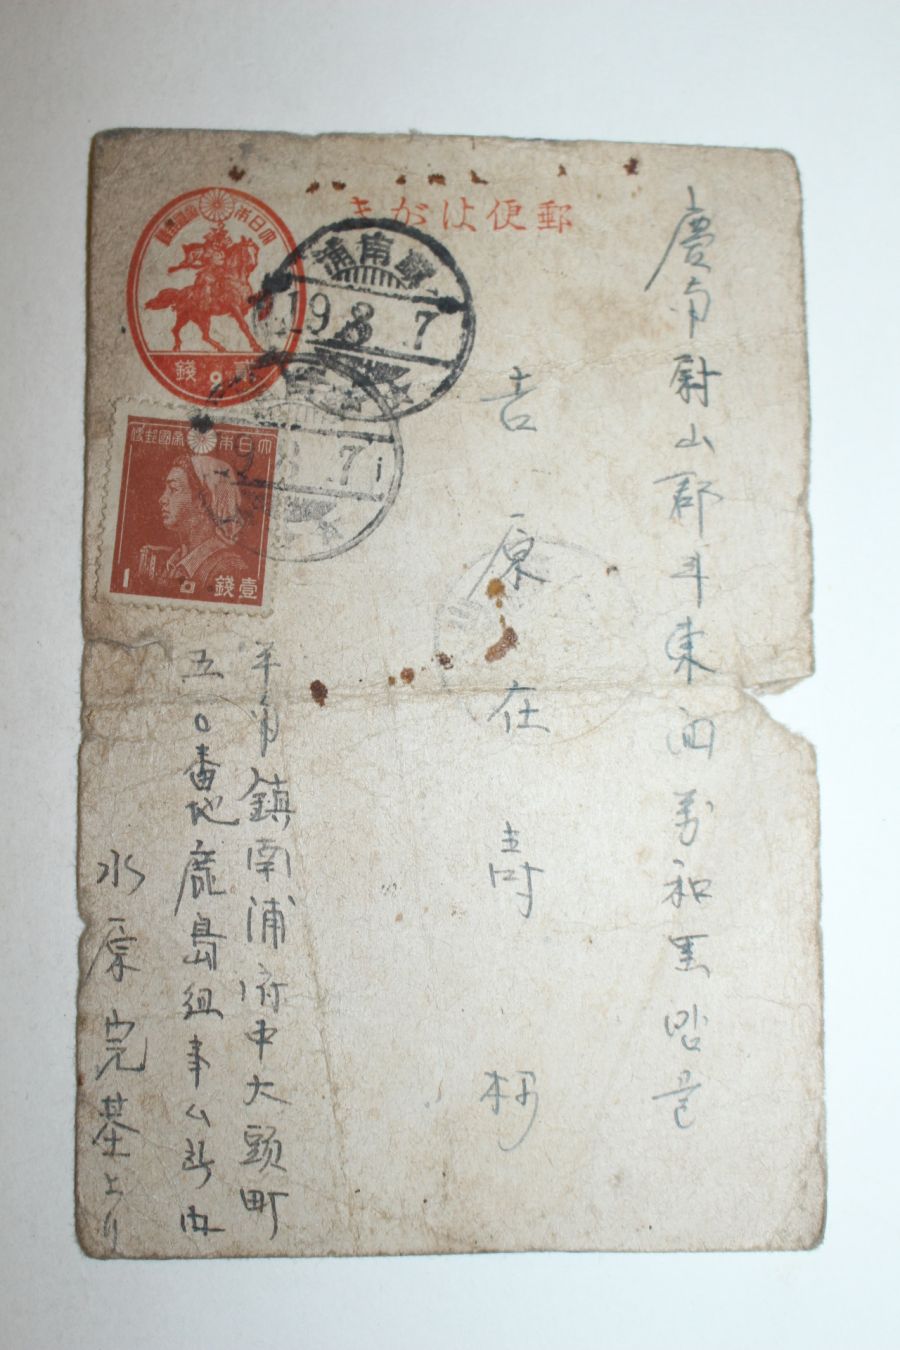 郵便はがき
大日本帝國郵便
貳銭
大日本帝國郵便
1
壹銭
鎮南浦
19.8.7
慶南蔚山郡斗東面萬和里
吉原在壽
平南鎮南浦府中大頭町
五一〇番地鹿島組事ム所内
水原完基上リ